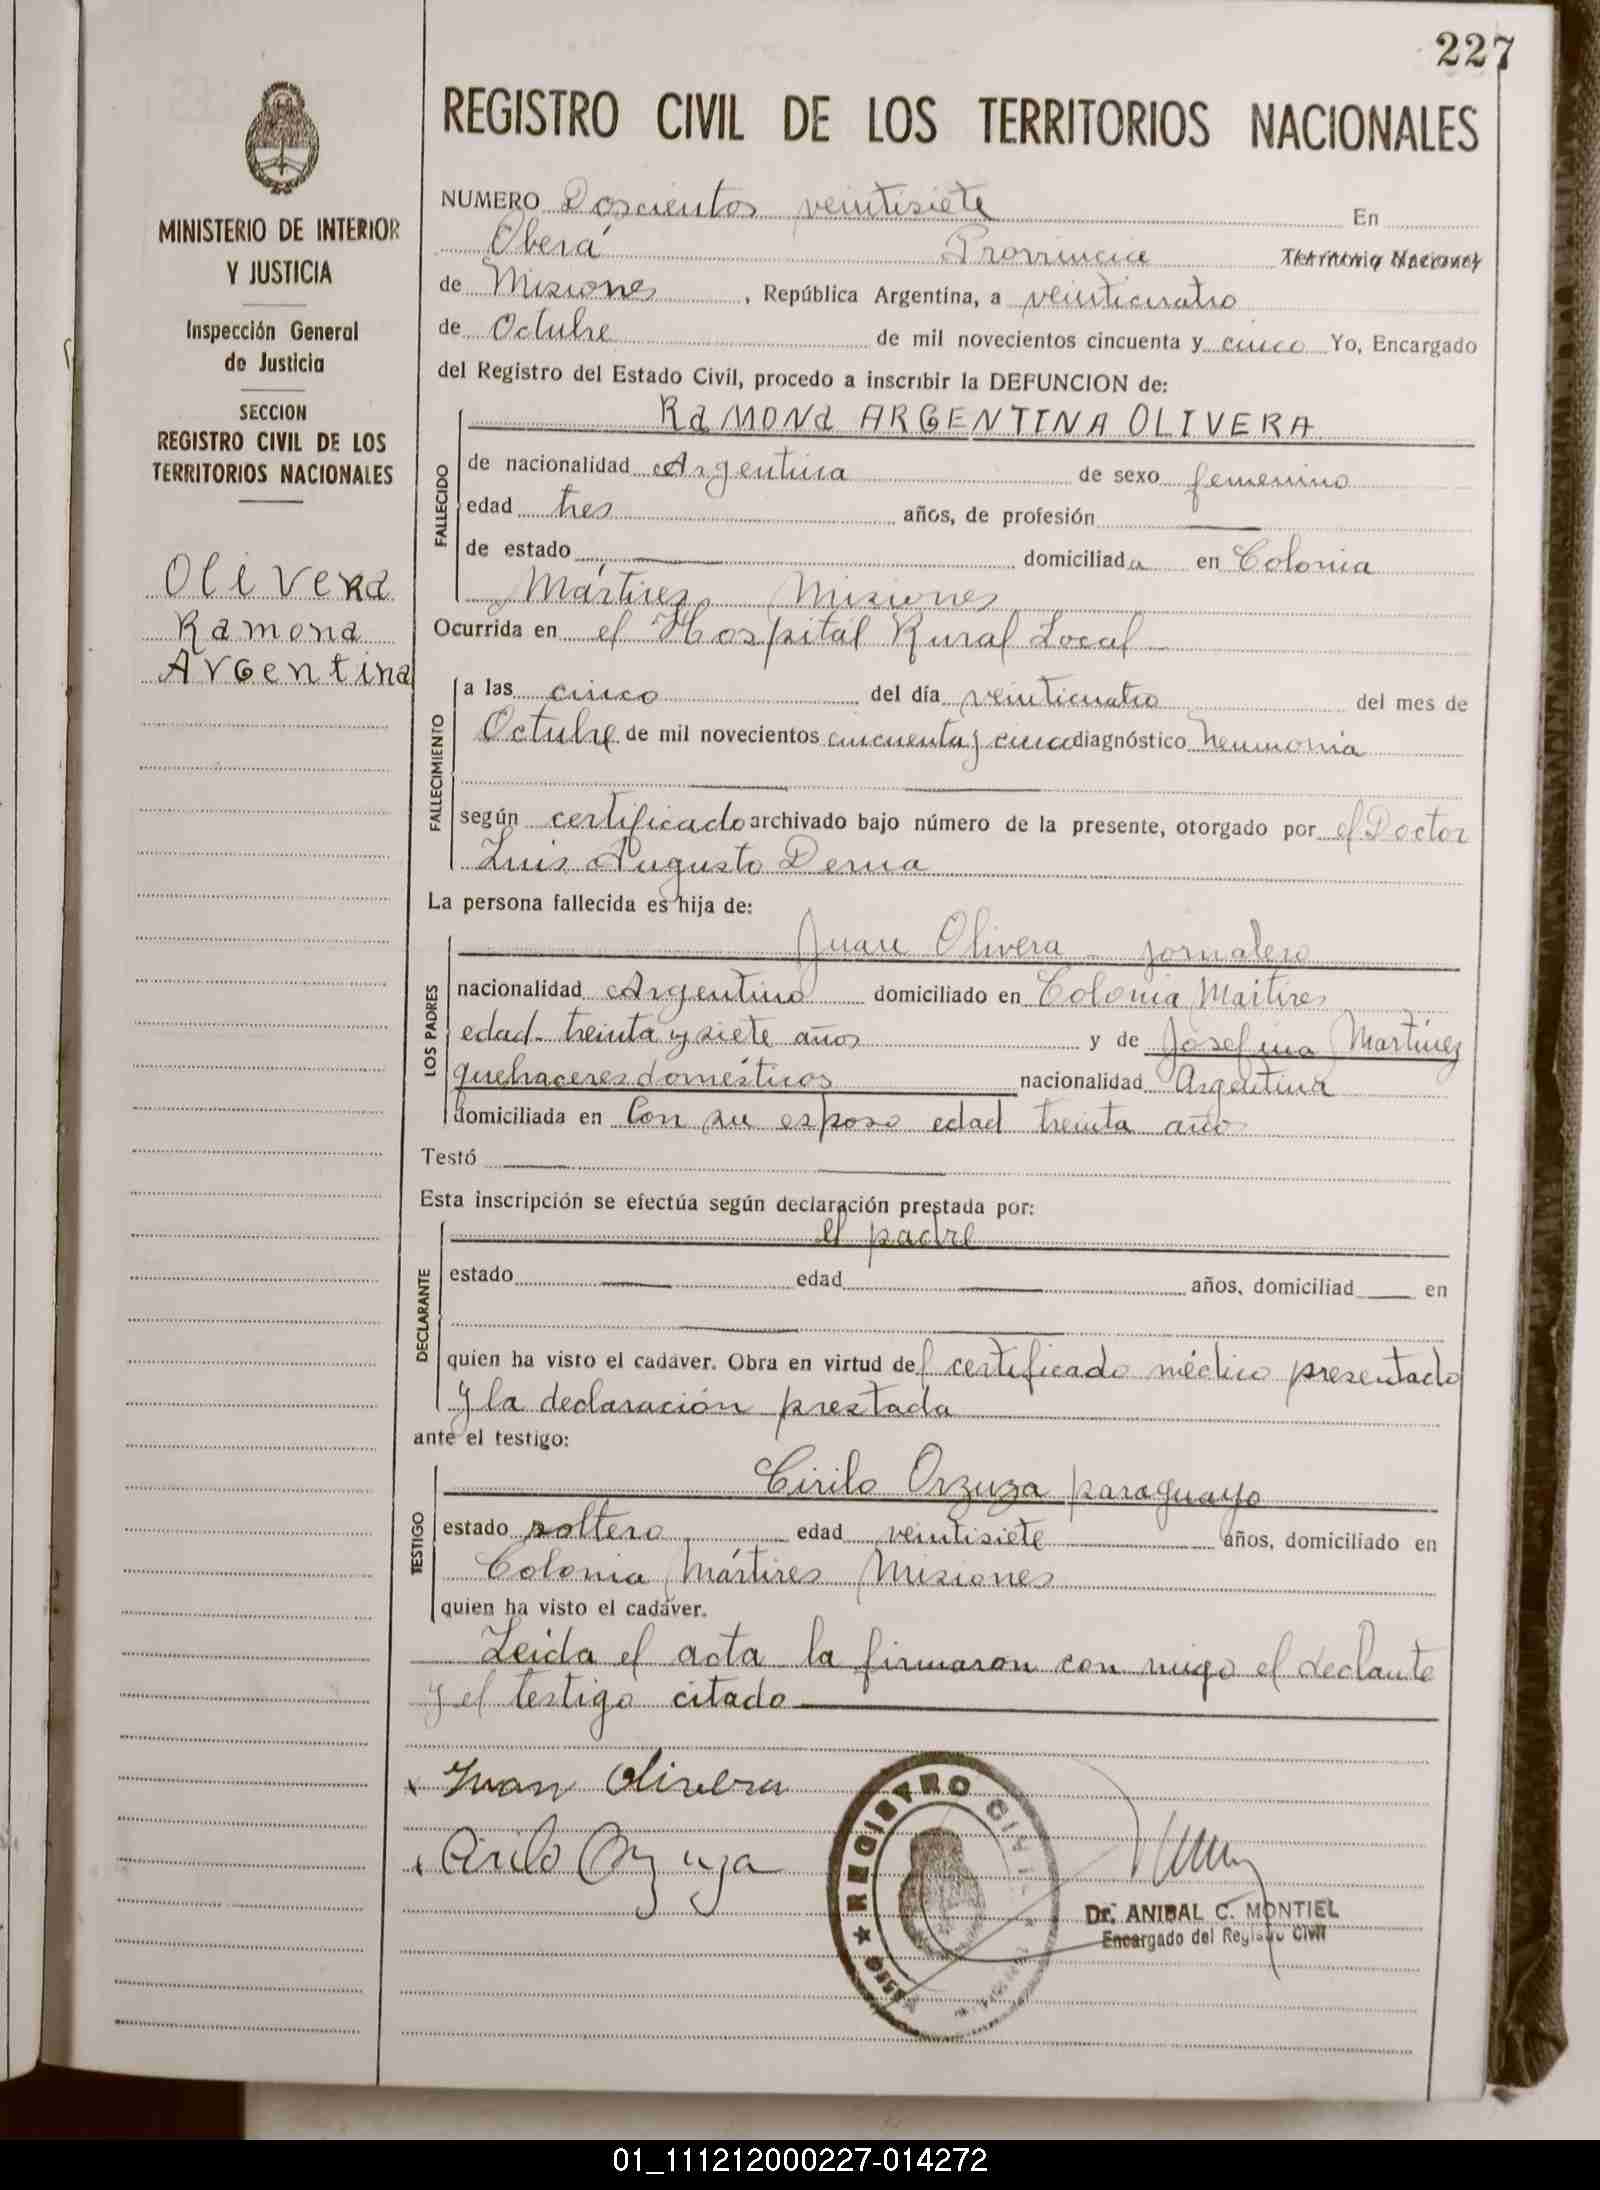 227
REGISTRO CIVIL DE LOS TERRITORIOS NACIONALES
MINISTERIO DE INTERIOR
Y JUSTICIA
Inspección General
de Justicia
SECCION
REGISTRO CIVIL DE LOS
TERRITORIOS NACIONALES
Olivera
Ramona
Argentina
NUMERO Doscientos veintisiete En
Oberá Provincia Territorio Nacional
de Misiones, República Argentina, a veinticuatro
de Octubre de mil novecientos cincuenta y cinco Yo, Encargado
del Registro del Estado Civil, procedo a inscribir la DEFUNCION de:
FALLECIDO
RAMONA ARGENTINA OLIVERA
de nacionalidad Argentina de sexo femenino
edad tres años, de profesión
de estado domiciliada en Colonia
Mártires Misiones
Ocurrida en el Hospital Rural Local
FALLECIMIENTO
a las cinco del día veinticuatro del mes de
Octubre de mil novecientos cincuenta y cinco diagnóstico neumonia
según certificado archivado bajo número de la presente, otorgado por el Doctor
Luis Augusto Derna
La persona fallecida es hija de:
LOS PADRES
Juan Olivera - jornalero
nacionalidad Argentino domiciliado en Colonia Martires
edad- treinta y siete años y de Josefina Martínez
quehaceres domésticos nacionalidad Argentina
domiciliada en Con su esposo edad treinta año
Testó
Esta inscripción se efectúa según declaración prestada por:
DECLARANTE
el padre
estado edad años, domiciliad en
quien ha visto el cadáver. Obra en virtud del certificado médico presentado
y la declaración prestada
ante el testigo:
TESTIGO
Cirilo Orzuza paraguayo
estado soltero edad veintisiete años, domiciliado en
Colonia Mártires Misiones
quien ha visto el cadáver.
Leida el acta la firmaron con migo el declante
y el testigo citado
x Juan Olivera
x Cirilo Orzuza
REGISTRO CIVIL
Dr. ANIBAL C. MONTIEL
Encargado del Registro Civil
01_111212000227-014272